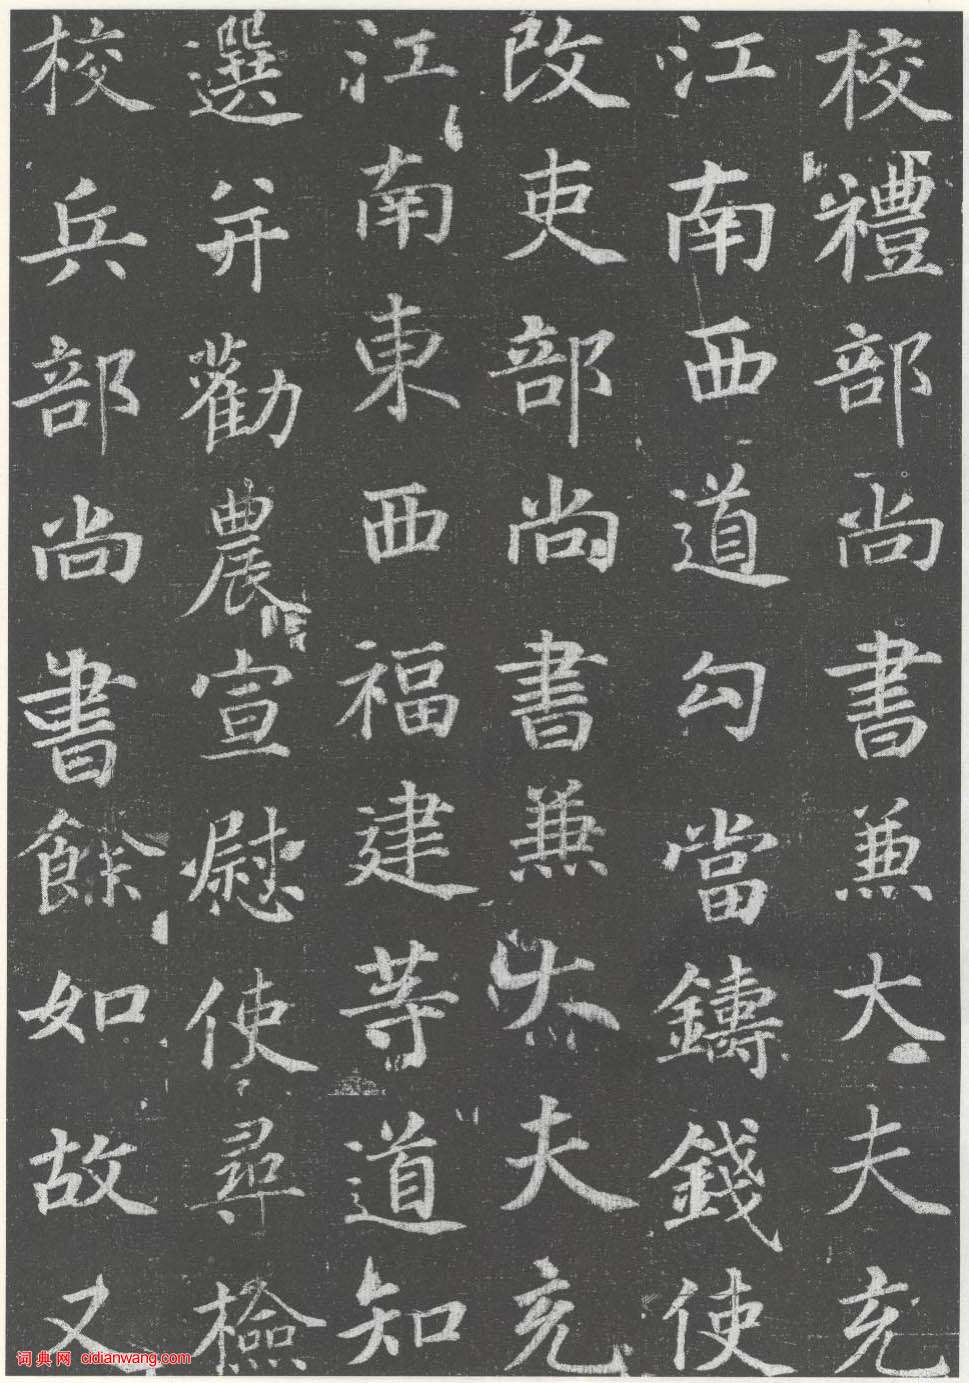 校禮部尚書兼大夫充
江南西道勾當鑄錢使
改吏部尚書兼大夫充
江南東西福建等道知
選并勸農宣慰使尋檢
校兵部尚書餘如故又
词典网 cidianwang.com